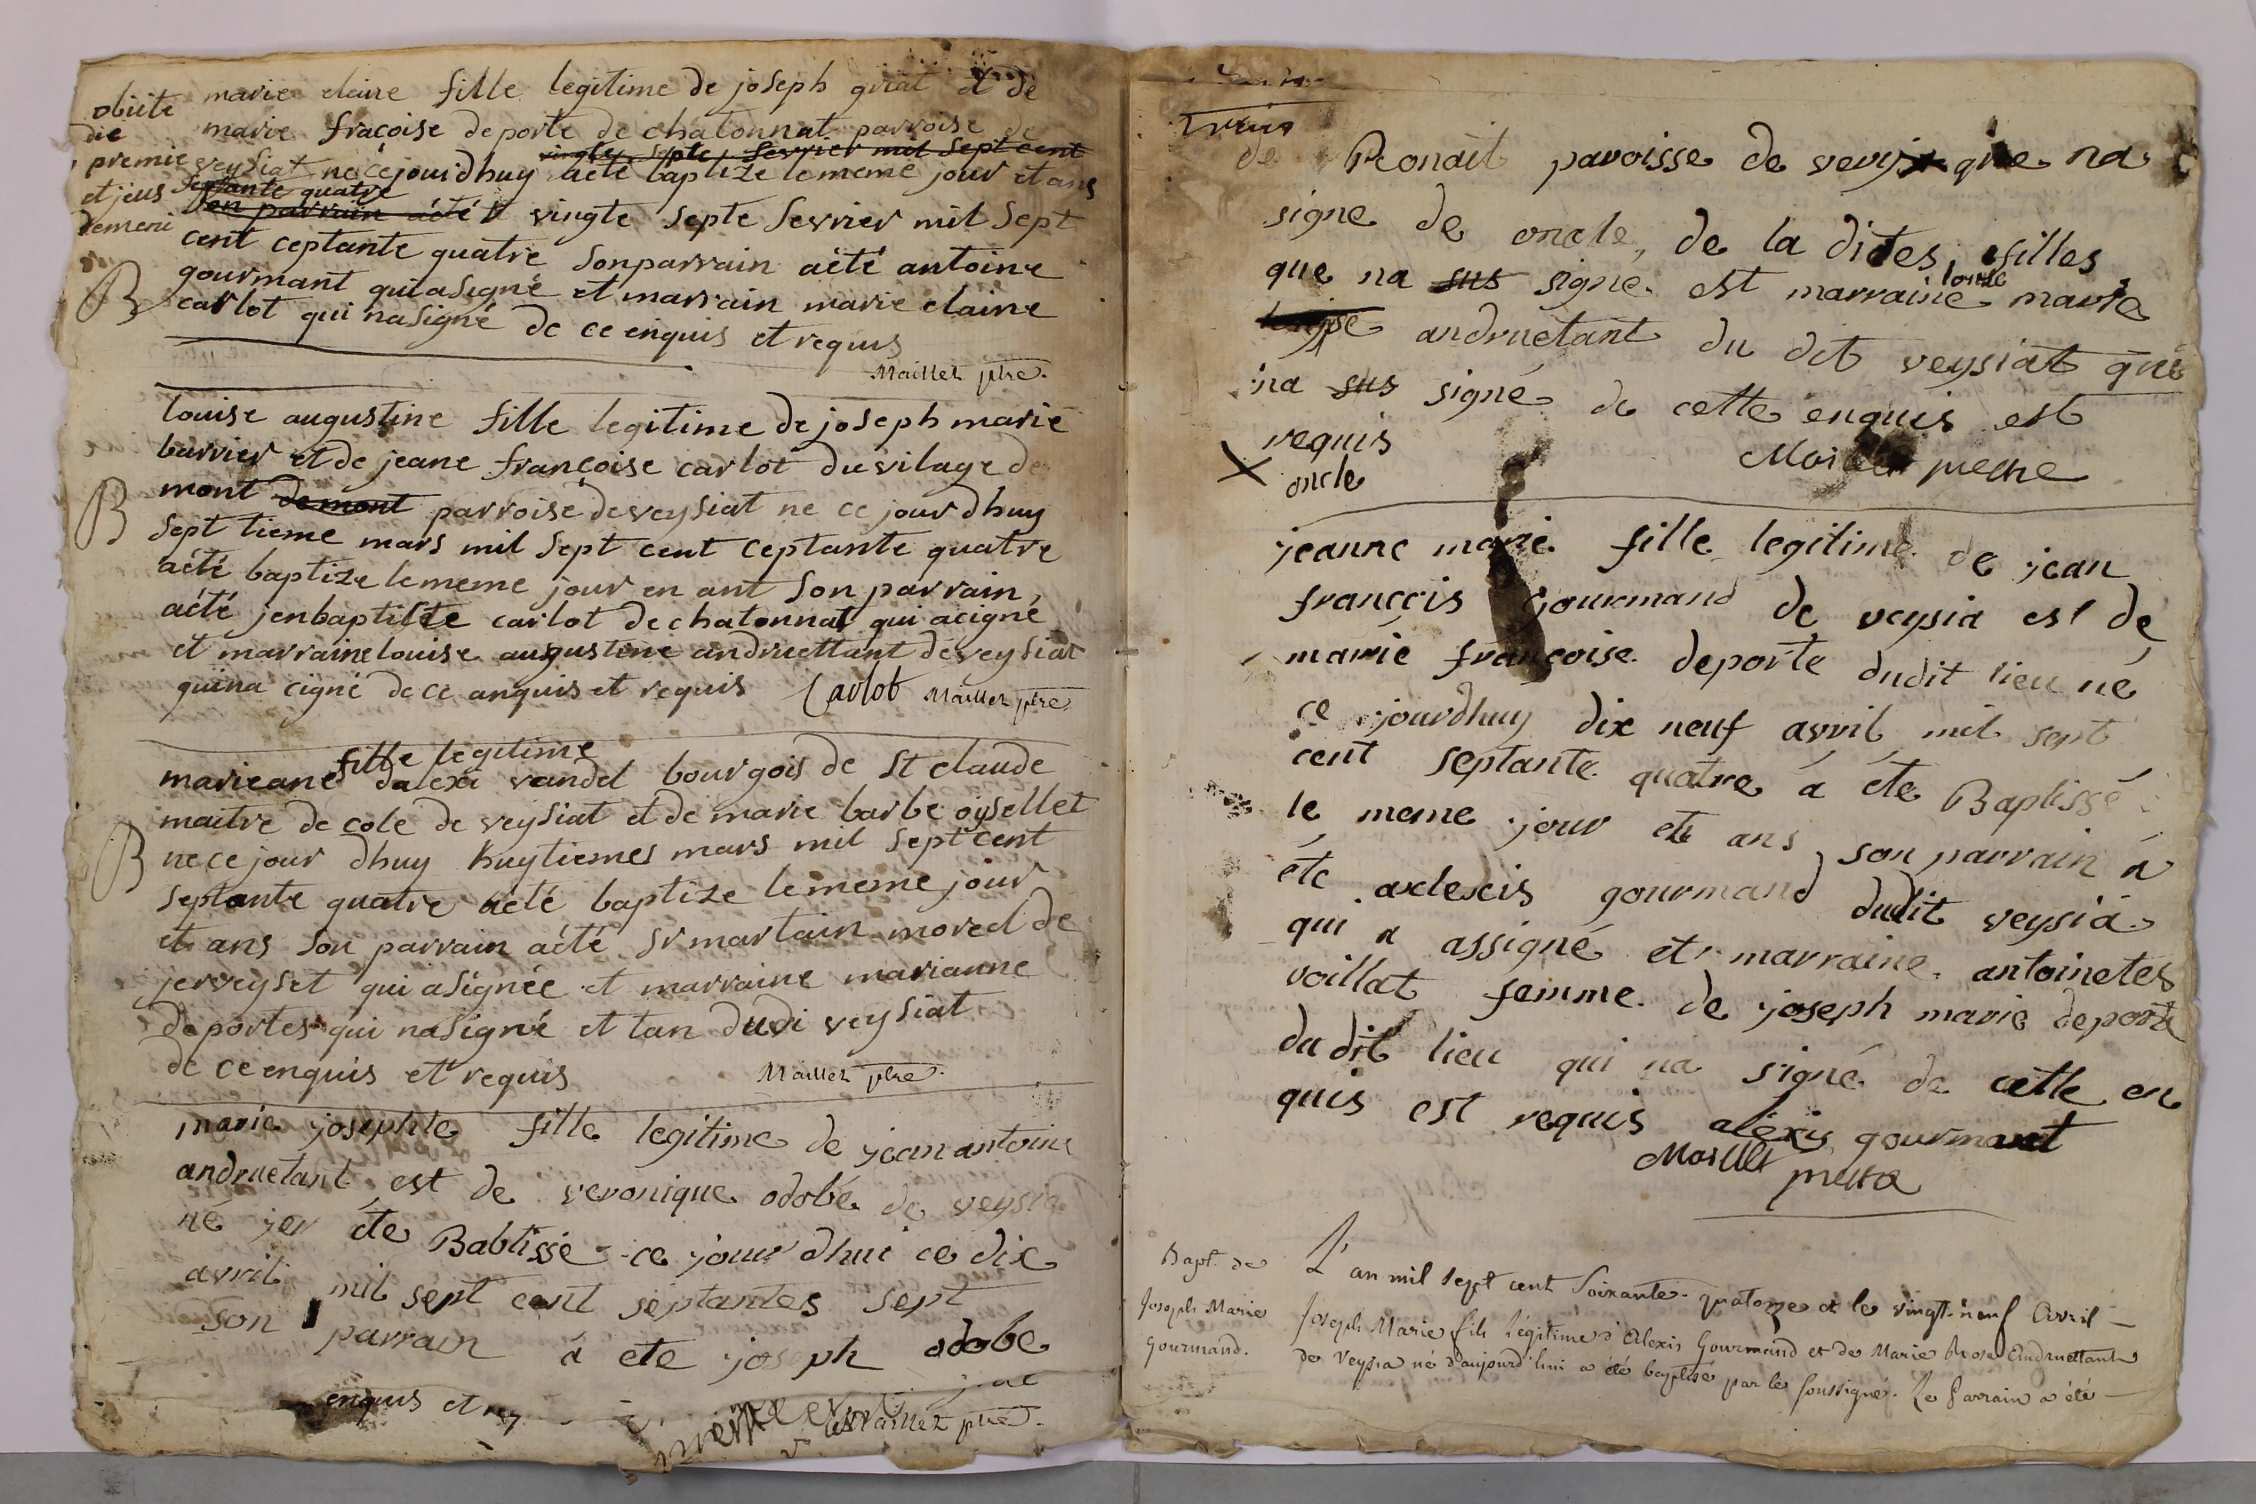 obiite
die
premie
et jeus
demeni
marie claire fille legitime de joseph griat et de
marie fraçoise deporte de chatonnat parroise de
vingte septe fevrier mil sept cent
veysiat ne ce jourdhuy acté baptize le meme jour et ans
septante quatre
son parrain acté vingte septe fevrier mil sept
cent ceptante quatre son parrain aété antoine
gourmant qui asigné et marrain marie claine
B
carlot qui nasigné de ce enquis et requis
Maillet ptre.
louise augustine fille legitime de joseph marie
barrier et de jeane françoise carlot du vilage de
B
mont de mont parroise de veysiat ne ce jour dhuy
sept tieme mars mil sept cent ceptante quatre
aété baptize le meme jour en ant son parrain,
aété jenbaptiste carlot de chatonnat qui acigné
et marraine louise augustine andruettant de veysiat
qui na cigné de ce anquis et requis Carlot Maillet ptre
fille legitime
marieane dalexi vandel bourgois de St claude
maitre de cole de veysiat et de marie barbe oysellet
B
ne ce jour dhuy huytiemes mars mil sept cent
septante quatre aété baptize le meme jour
et ans son parrain aété sr martain morel de
jerveyset qui asignée et marraine marianne
deportes qui nasigné et tan dudi veysiat
de ce enquis et requis Maillet ptre.
marie josephte fille legitime de jean antoine
andruetant est de veronique odobé de veysia
né jer éte Babtisse ce jour dhui ce dix
avril mil sept cent septantes sept
son parrain á ete joseph odobe
enquis et
Maillet ptre.
de Ronait paroisse de que na
signe de oncle, de la dites, filles
que na sus signe est marraine louise marie
andruetant du dit veysiat que
na sus signé de cette enquis est
requis
X oncle
Maillet pretre
jeanne marie fille legitime de jean
françois Gourmand de veysia est de
marie françoise deporte dudit lieu né
ce jourdhuy dix neuf avril mil sept
cent septante quatre á éte Baptissé
le meme jour et ans son parrain á
éte aclexis gourmand dudit veysia
qui a assigné et marraine antoinetes
voillat femme de joseph marie deporte
du dit lieu qui na signé de cette en
quis est requis alexis gourmant
Maillet
Bapt. de
Joseph Marie
Gourmand.
L'an mil sept cent soixante-quatorze et le vingt-neuf Avril
Joseph Marie fils légitime d'Alexis Gourmand et de Marie Rose Andruettant
de Veysia né d'aujourd'hui a été baptisé par le soussigné. Le Parrain a été